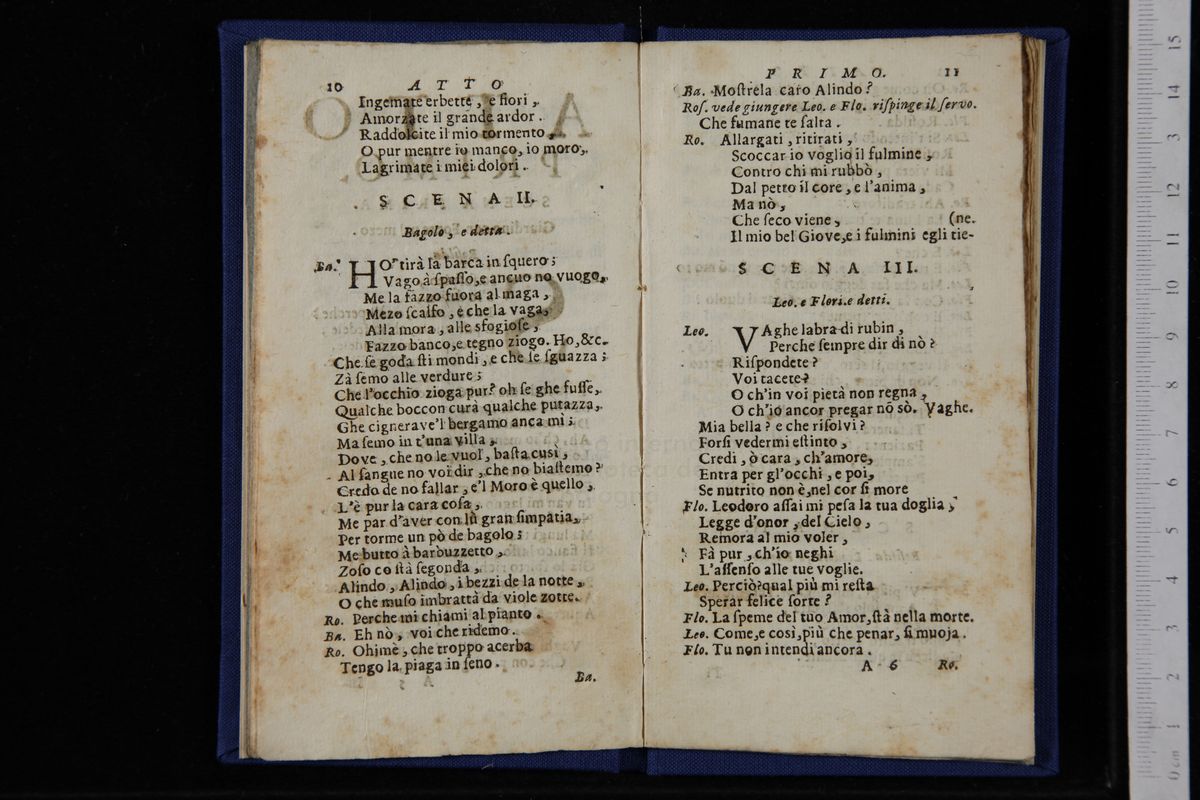 10 ATTO
Ingemate erbette, e fiori,
Amorzate il grande ardor.
Raddolcite il mio tormento,
O pur mentre io manco, io moro,
Lagrimate i miei dolori.
SCENA II.
Bagolo, e detta.
Ba. HOr tirà la barca in ſquero;
Vago à ſpaſſo, e ancuo no vuogo,
Me la fazzo fuora al maga,
Mezo ſcalfo, e che la vaga,
Alla mora, alle sfogioſe,
Fazzo banco, e tegno ziogo. Ho, &c.
Che ſe goda ſti mondi, e che ſe ſguazza;
Zà ſemo alle verdure;
Che l'occhio zioga pur? oh ſe ghe fuſſe,
Qualche boccon cura qualche putazza,
Ghe cignerave'l bergamo anca mi;
Ma ſemo in t'una villa,
Dove, che no le vuol, baſta cusì,
Al ſangue no voi dir, che no biaſtemo?
Credo de no fallar, e'l Moro è quello,
L'è pur la cara coſa,
Me par d'aver con lù gran ſimpatia,
Per torme un pò de bagolo;
Me butto à barbuzzetto,
Zoſo co ſtà ſegonda,
Alindo, Alindo, i bezzi de la notte,
O che muſo imbrattà da viole zotte.
Ro. Perche mi chiami al pianto.
Ba. Eh nò, voi che ridemo.
Ro. Ohimè, che troppo acerba
Tengo la piaga in ſeno.
Ba.
PRIMO. 11
Ba. Moſtrela caro Alindo?
Roſ. vede giungere Leo. e Flo. riſpinge il ſervo.
Che fumane te ſalta.
Ro. Allargati, ritirati,
Scoccar io voglio il fulmine,
Contro chi mi rubbò,
Dal petto il core, e l'anima,
Ma nò,
Che ſeco viene, (ne.
Il mio bel Giove, e i fulmini egli tie-
SCENA III.
Leo. e Flori. e detti.
Leo. VAghe labra di rubin,
Perche ſempre dir di nò?
Riſpondete?
Voi tacete?
O ch'in voi pietà non regna,
O ch'io ancor pregar nō sò. Vaghe.
Mia bella? e che riſolvi?
Forſi vedermi eſtinto,
Credi, ò cara, ch'amore,
Entra per gl'occhi, e poi,
Se nutrito non è, nel cor ſi more
Flo. Leodoro aſſai mi peſa la tua doglia,
Legge d'onor, del Cielo,
Remora al mio voler,
Fà pur, ch'io neghi
L'aſſenſo alle tue voglie.
Leo. Perciò? qual più mi reſta
Sperar felice ſorte?
Flo. La ſpeme del tuo Amor, ſtà nella morte.
Leo. Come, e così, più che penar, ſi muoja.
Flo. Tu non intendi ancora.
A 6 Ro.